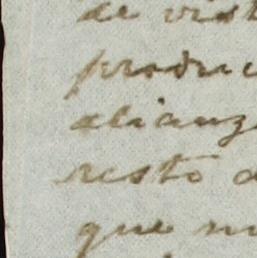 de vist
produc
alianz
resto d
que m